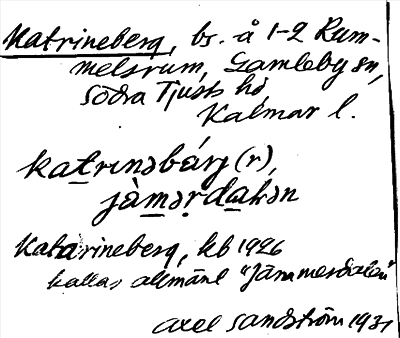 Katrineberg, bs. å 1-2 Rum-
melsrum, Gamleby sn,
Södra Tjusts hd,
Kalmar l.
katrɩnəbárj (r),
jàmərdakən
Katarineberg, kb 1926
kallas allmänt "Jämmerdalen"
Axel Sandström 1931